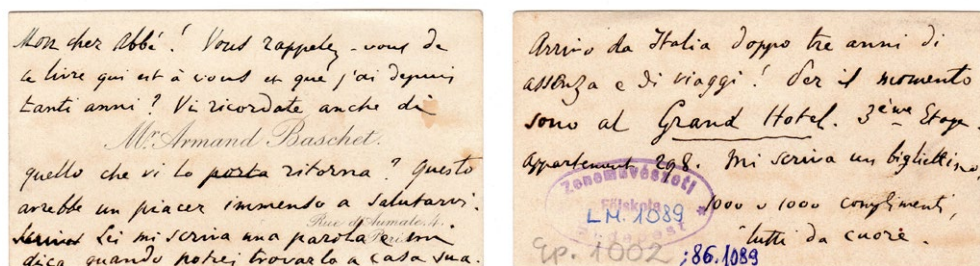 Mon cher Abbé! Vous rappelez-vous de
ce livre qui est à vous et que j'ai depuis
tanti anni? Vi ricordate anche di
Mr. Armand Baschet.
quello che vi lo porta ritorna? Questo
avrebbe un piacer immenso a salutarvi.
Rue d'Aumale, 4.
Lei mi scriva una parola e mi
Paris
dica quando potrei trovarla a casa sua.
Arrivo da Italia doppo tre anni di
assenza e di viaggi! Per il momento
sono al Grand Hotel. 3ème Etage
Appartement 298. Mi scriva un bigliettino,
Zeneművészeti
Főiskola
Budapest
LM. 1089
1000 e 1000 complimenti,
tutti da cuore.
Ep. 1002
; 86.1089